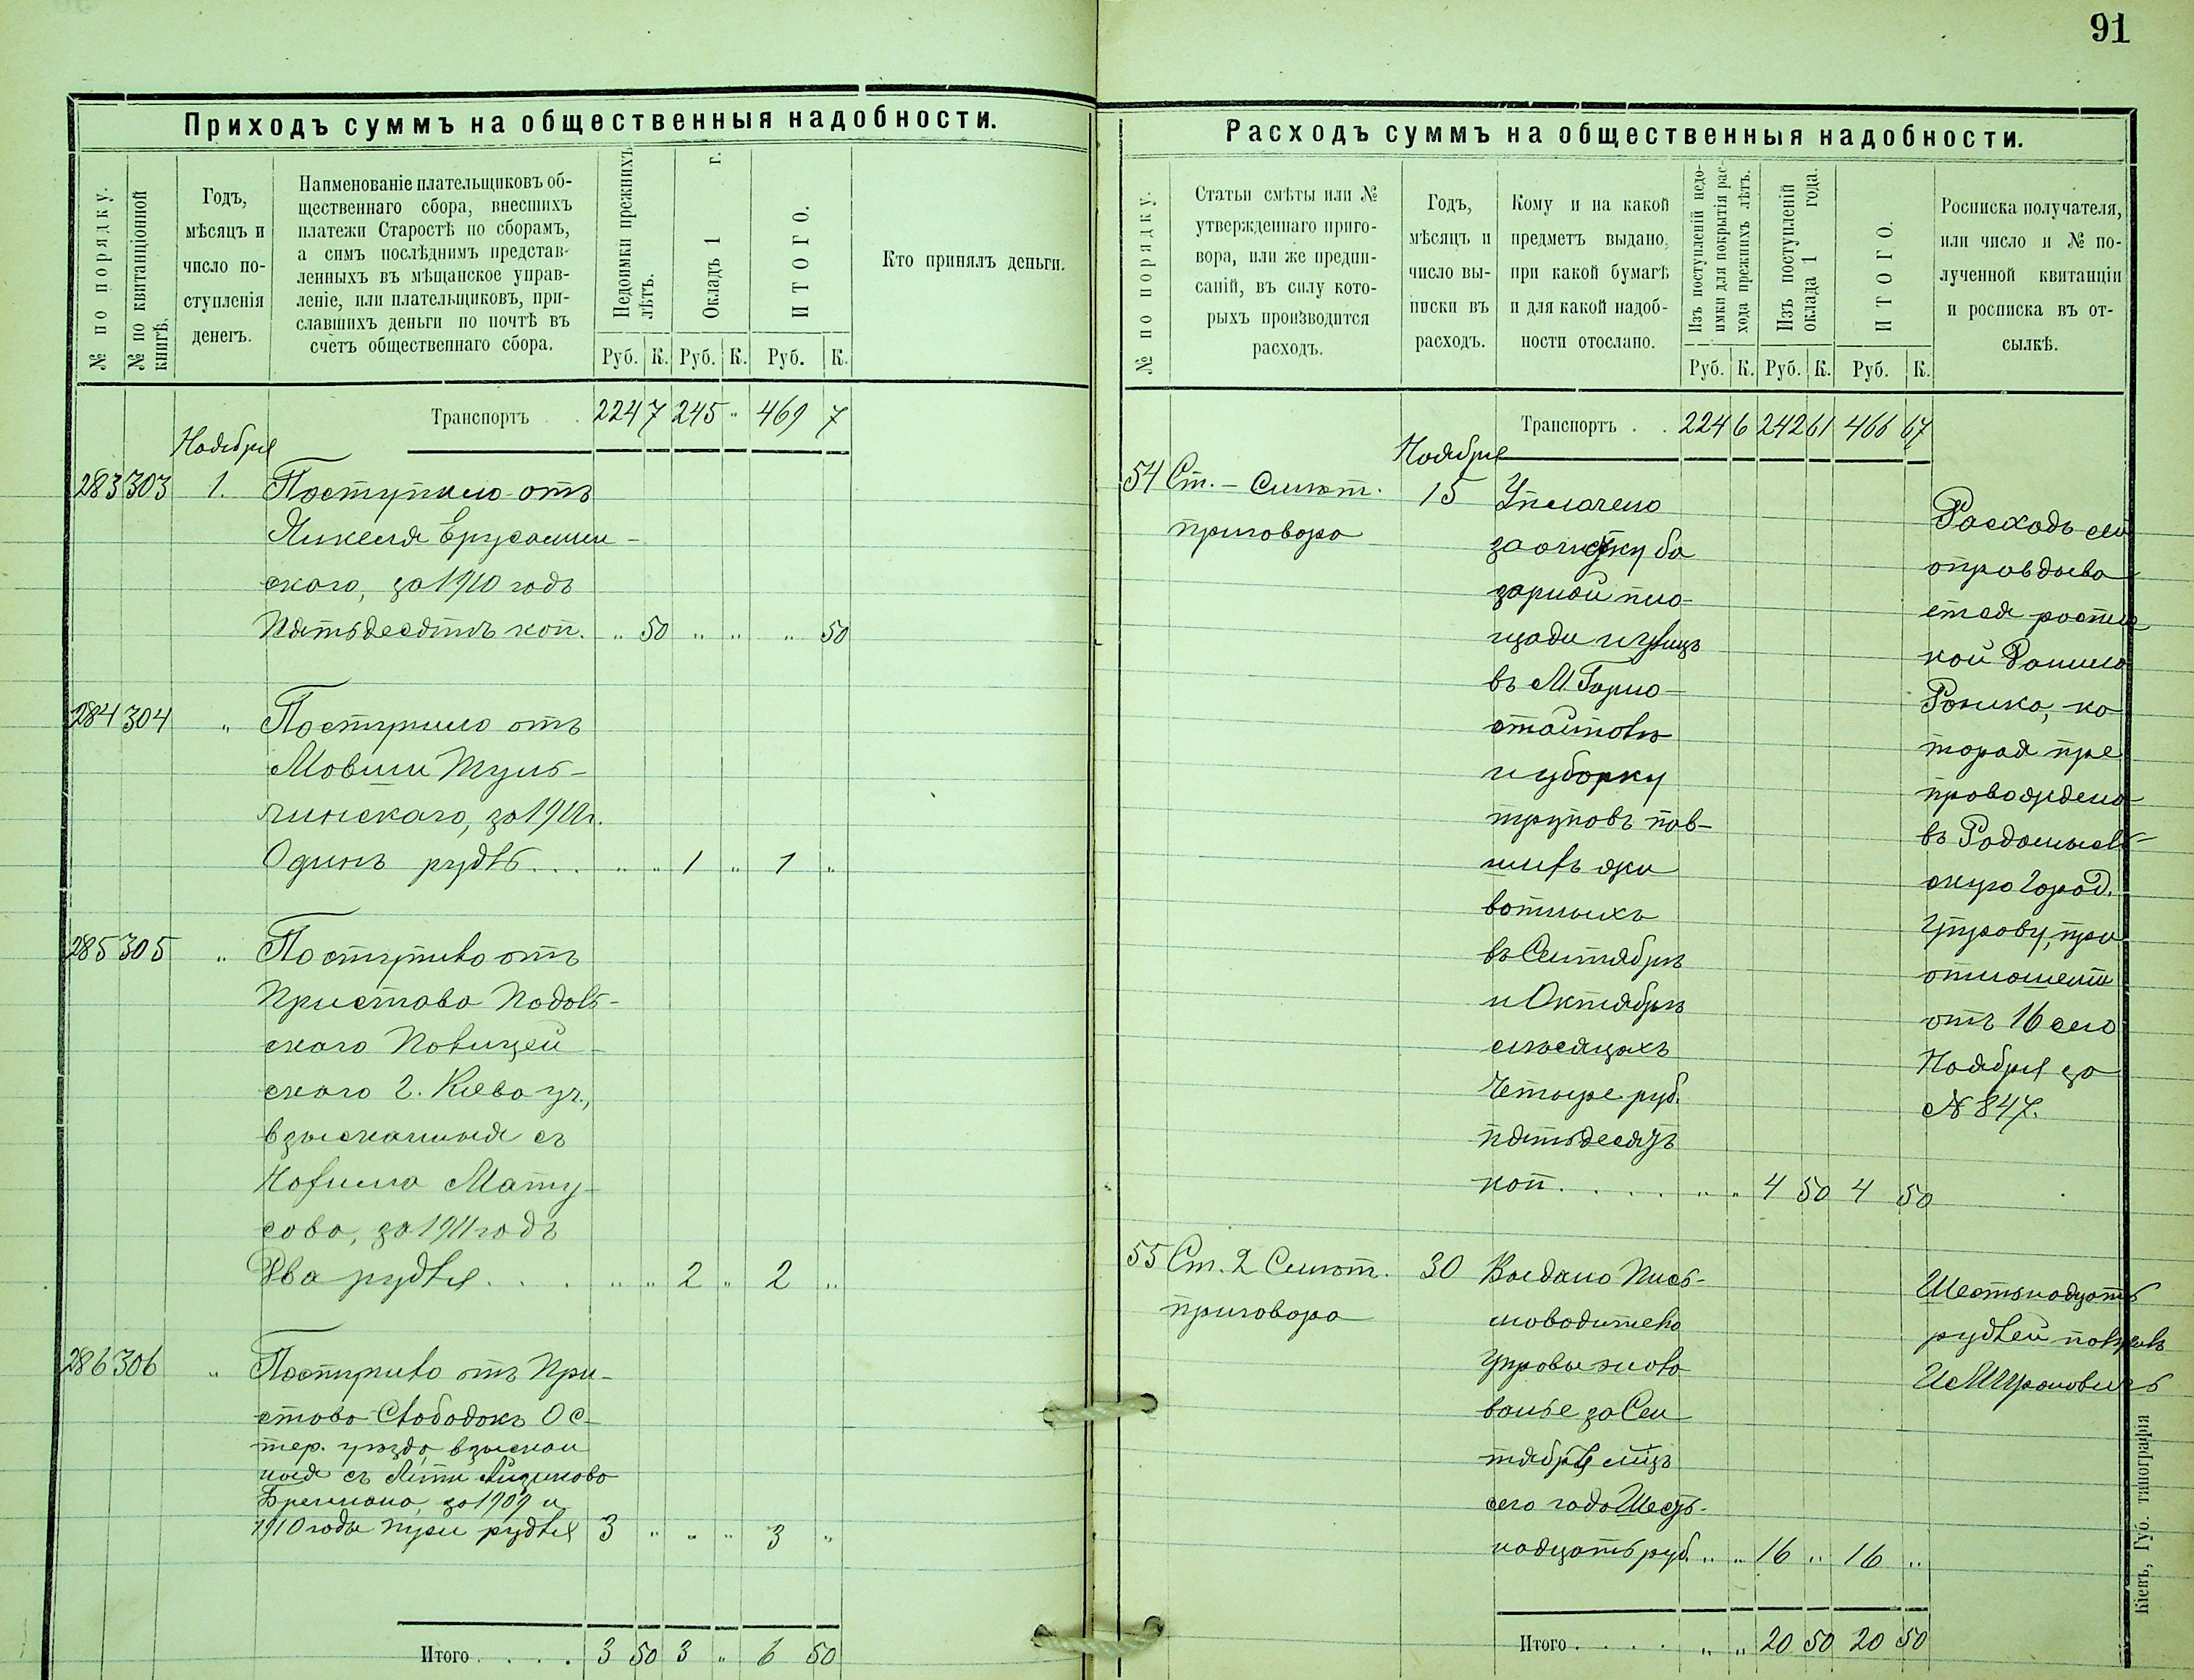 91
Приходъ суммъ на общественныя надобности.
№ по порядку.
№ по квитанціонной
книгѣ.
Годъ,
мѣсяцъ и
число по-
ступленія
денегъ.
Наименованіе плательщиковъ об-
щественнаго сбора, внесшихъ
платежи Старостѣ по сборамъ,
а симъ послѣднимъ представ-
ленныхъ въ мѣщанское управ-
леніе, или плательщиковъ, при-
славшихъ деньги по почтѣ въ
счетъ общественнаго сбора.
Недоимки прежнихъ
лѣтъ.
Окладъ 1 г.
ИТОГО.
Руб. К. Руб. К. Руб. К.
Кто принялъ деньги.
Транспортъ . . 224 7 245 " 469 7
Ноября
283 303 1. Поступило отъ
Янкеля Ерусалим-
скаго, за 1910 годъ
Пятьдесятъ коп. " 50 " " " 50
284 304 " Поступило отъ
Мовши Туль-
чинскаго, за 1911 г.
Одинъ рубль... " " 1 " 1 "
285 305 " Поступило отъ
Пристава Подоль-
скаго Полицей-
скаго г. Кіева уч.,
взысканныя съ
Матy-
сова, за 1911 годъ
Два рубля. . . . " " 2 " 2 "
286 306 " Поступило отъ При-
става Слободокъ Ос-
тер. уѣзда, взыскан
ныя съ
за 1909 и
1910 годы три рубля 3 " " " 3 "
Итого . . . . 3 50 3 " 6 50
Расходъ суммъ на общественныя надобности.
№ по порядку.
Статьи смѣты или №
утвержденнаго приго-
вора, или же предпи-
саній, въ силу кото-
рыхъ производится
расходъ.
Годъ,
мѣсяцъ и
число вы-
писки въ
расходъ.
Кому и на какой
предметъ выдано,
при какой бумагѣ
и для какой надоб-
ности отослано.
Изъ поступленій недо-
имки для покрытія рас-
хода прежнихъ лѣтъ.
Изъ поступленій
оклада 1 года.
ИТОГО.
Руб. К. Руб. К. Руб. К.
Росписка получателя,
или число и № по-
лученной квитанціи
и росписка въ от-
сылкѣ.
Транспортъ . . 224 6 242 61 466 67
Ноября
54 Ст. - Смѣт. 15 Уплачено
приговора
за очистку ба
зарной пло-
щади и улицъ
въ М. Горно-
стайполѣ
и уборку
труповъ пав-
шихъ жи
вотныхъ
въ Сентябрѣ
и Октябрѣ
мѣсяцахъ
Четыре руб.
пятьдесятъ
коп. . . . . " " 4 50 4 50
Расходъ сей
оправдыва
ется роспис
кой Данила
которая пре
провождена
въ Радомысль-
скую Город.
Управу, при
отношеніи
отъ 16 сего
Ноября за
№ 847.
55 Ст. 2 Смѣт. 30 Выдано Пись-
приговора
моводителю
Управы жало
ванье за Сен
тябрь мцъ
сего года Шест-
надцать руб. " " 16 " 16 "
Шестьнадцать
рублей получилъ
Итого . . . . " " 20 50 20 50
Кіевъ, Губ. типографія